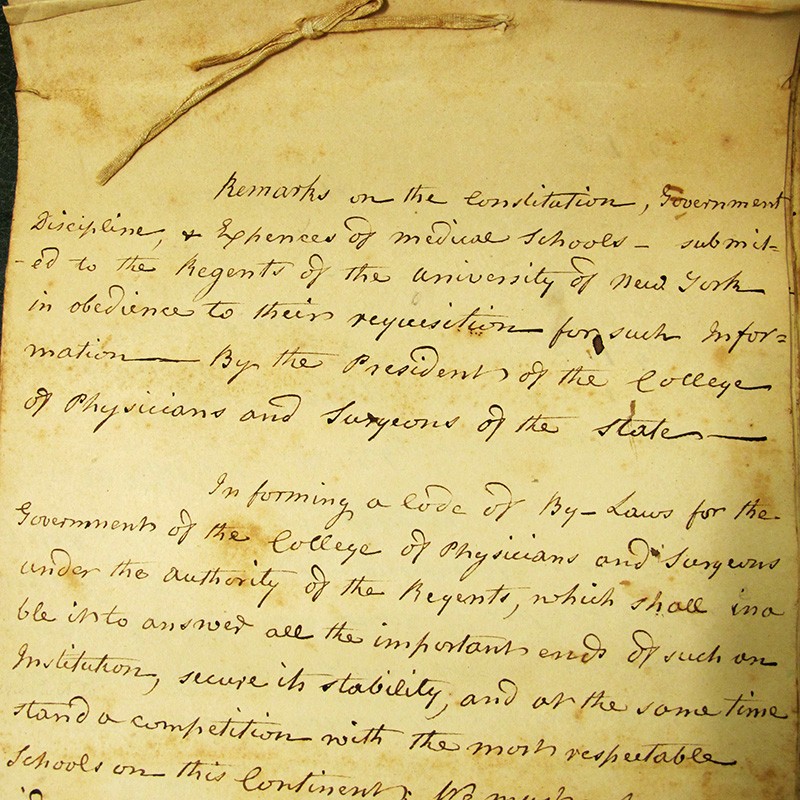 Remarks on the Constitution, Government
Discipline, & Expences of medical Schools – submit-
-ed to the Regents of the university of New York
in obedience to their requisition for such Infor=
mation — By the President of the College
of Physicians and Surgeons of the state —
In forming a Code of By-Laws for the
Government of the College of Physicians and Surgeons
under the authority of the Regents, which shall ina
ble it to answer all the important ends of such an
Institution, secure its stability, and at the same time
stand a competition with the most respectable
Schools on this Continent; We must